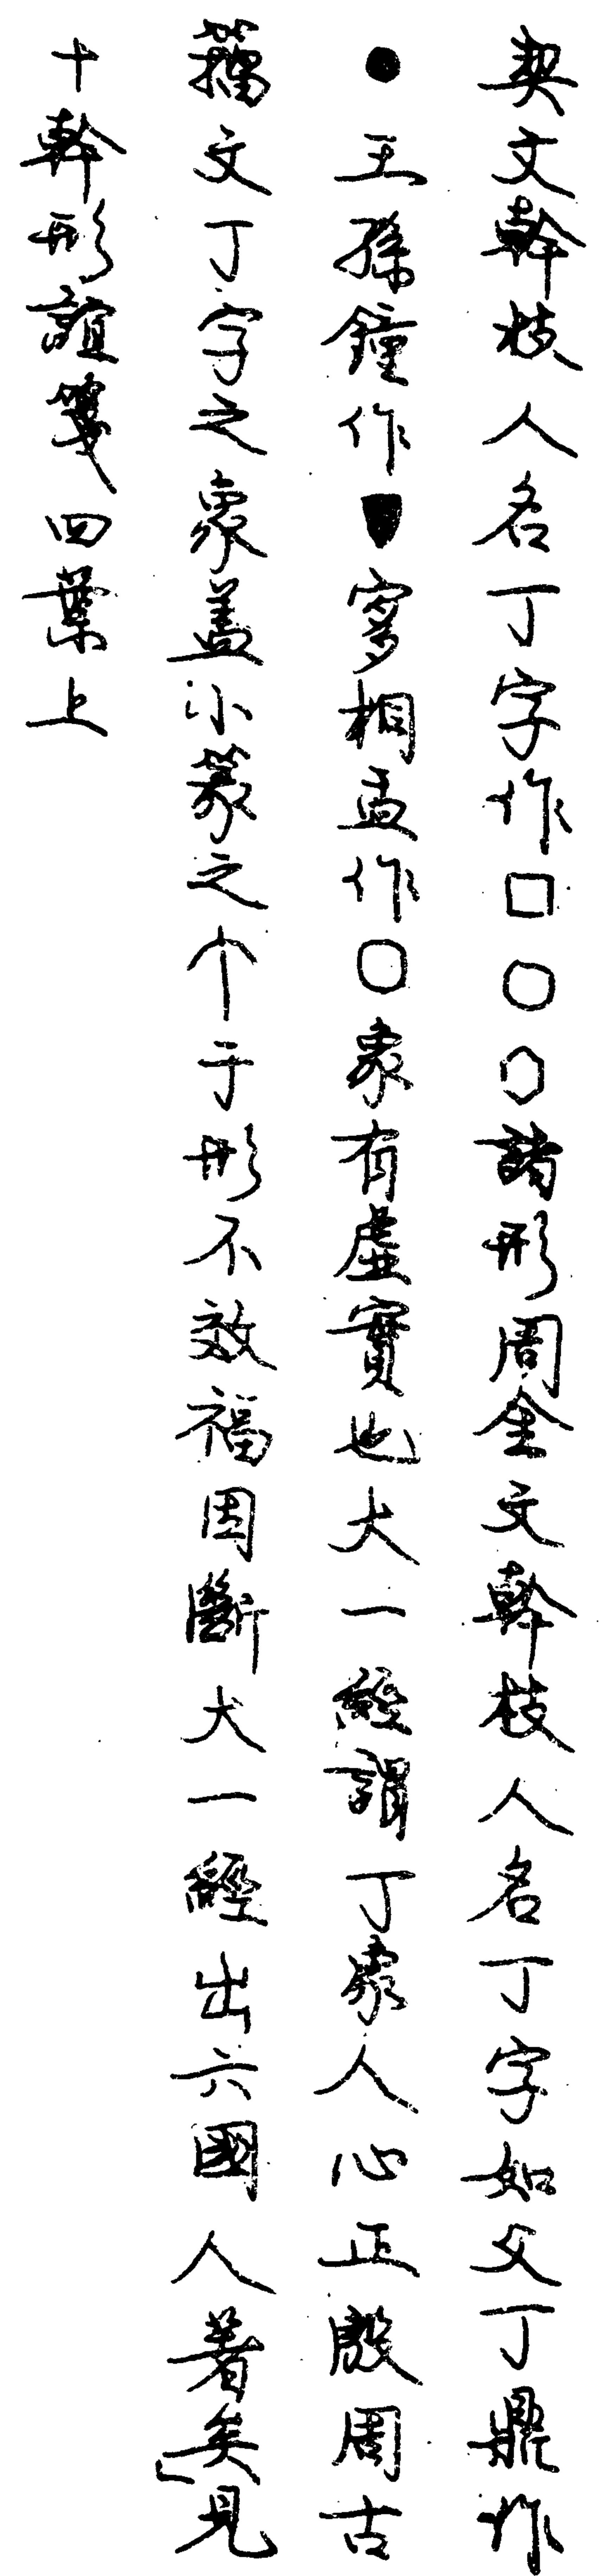 契文幹枝人名丁字作□○○諸形周金文幹枝人名丁字如父丁鼎作
●王孫鐘作▼寥相盂作○象有虛實也大一經謂丁象人心正殷周古
籒文丁字之象蓋小篆之个于形不效福因斷大一經出六國人著矣」見
十幹形誼箋四葉上